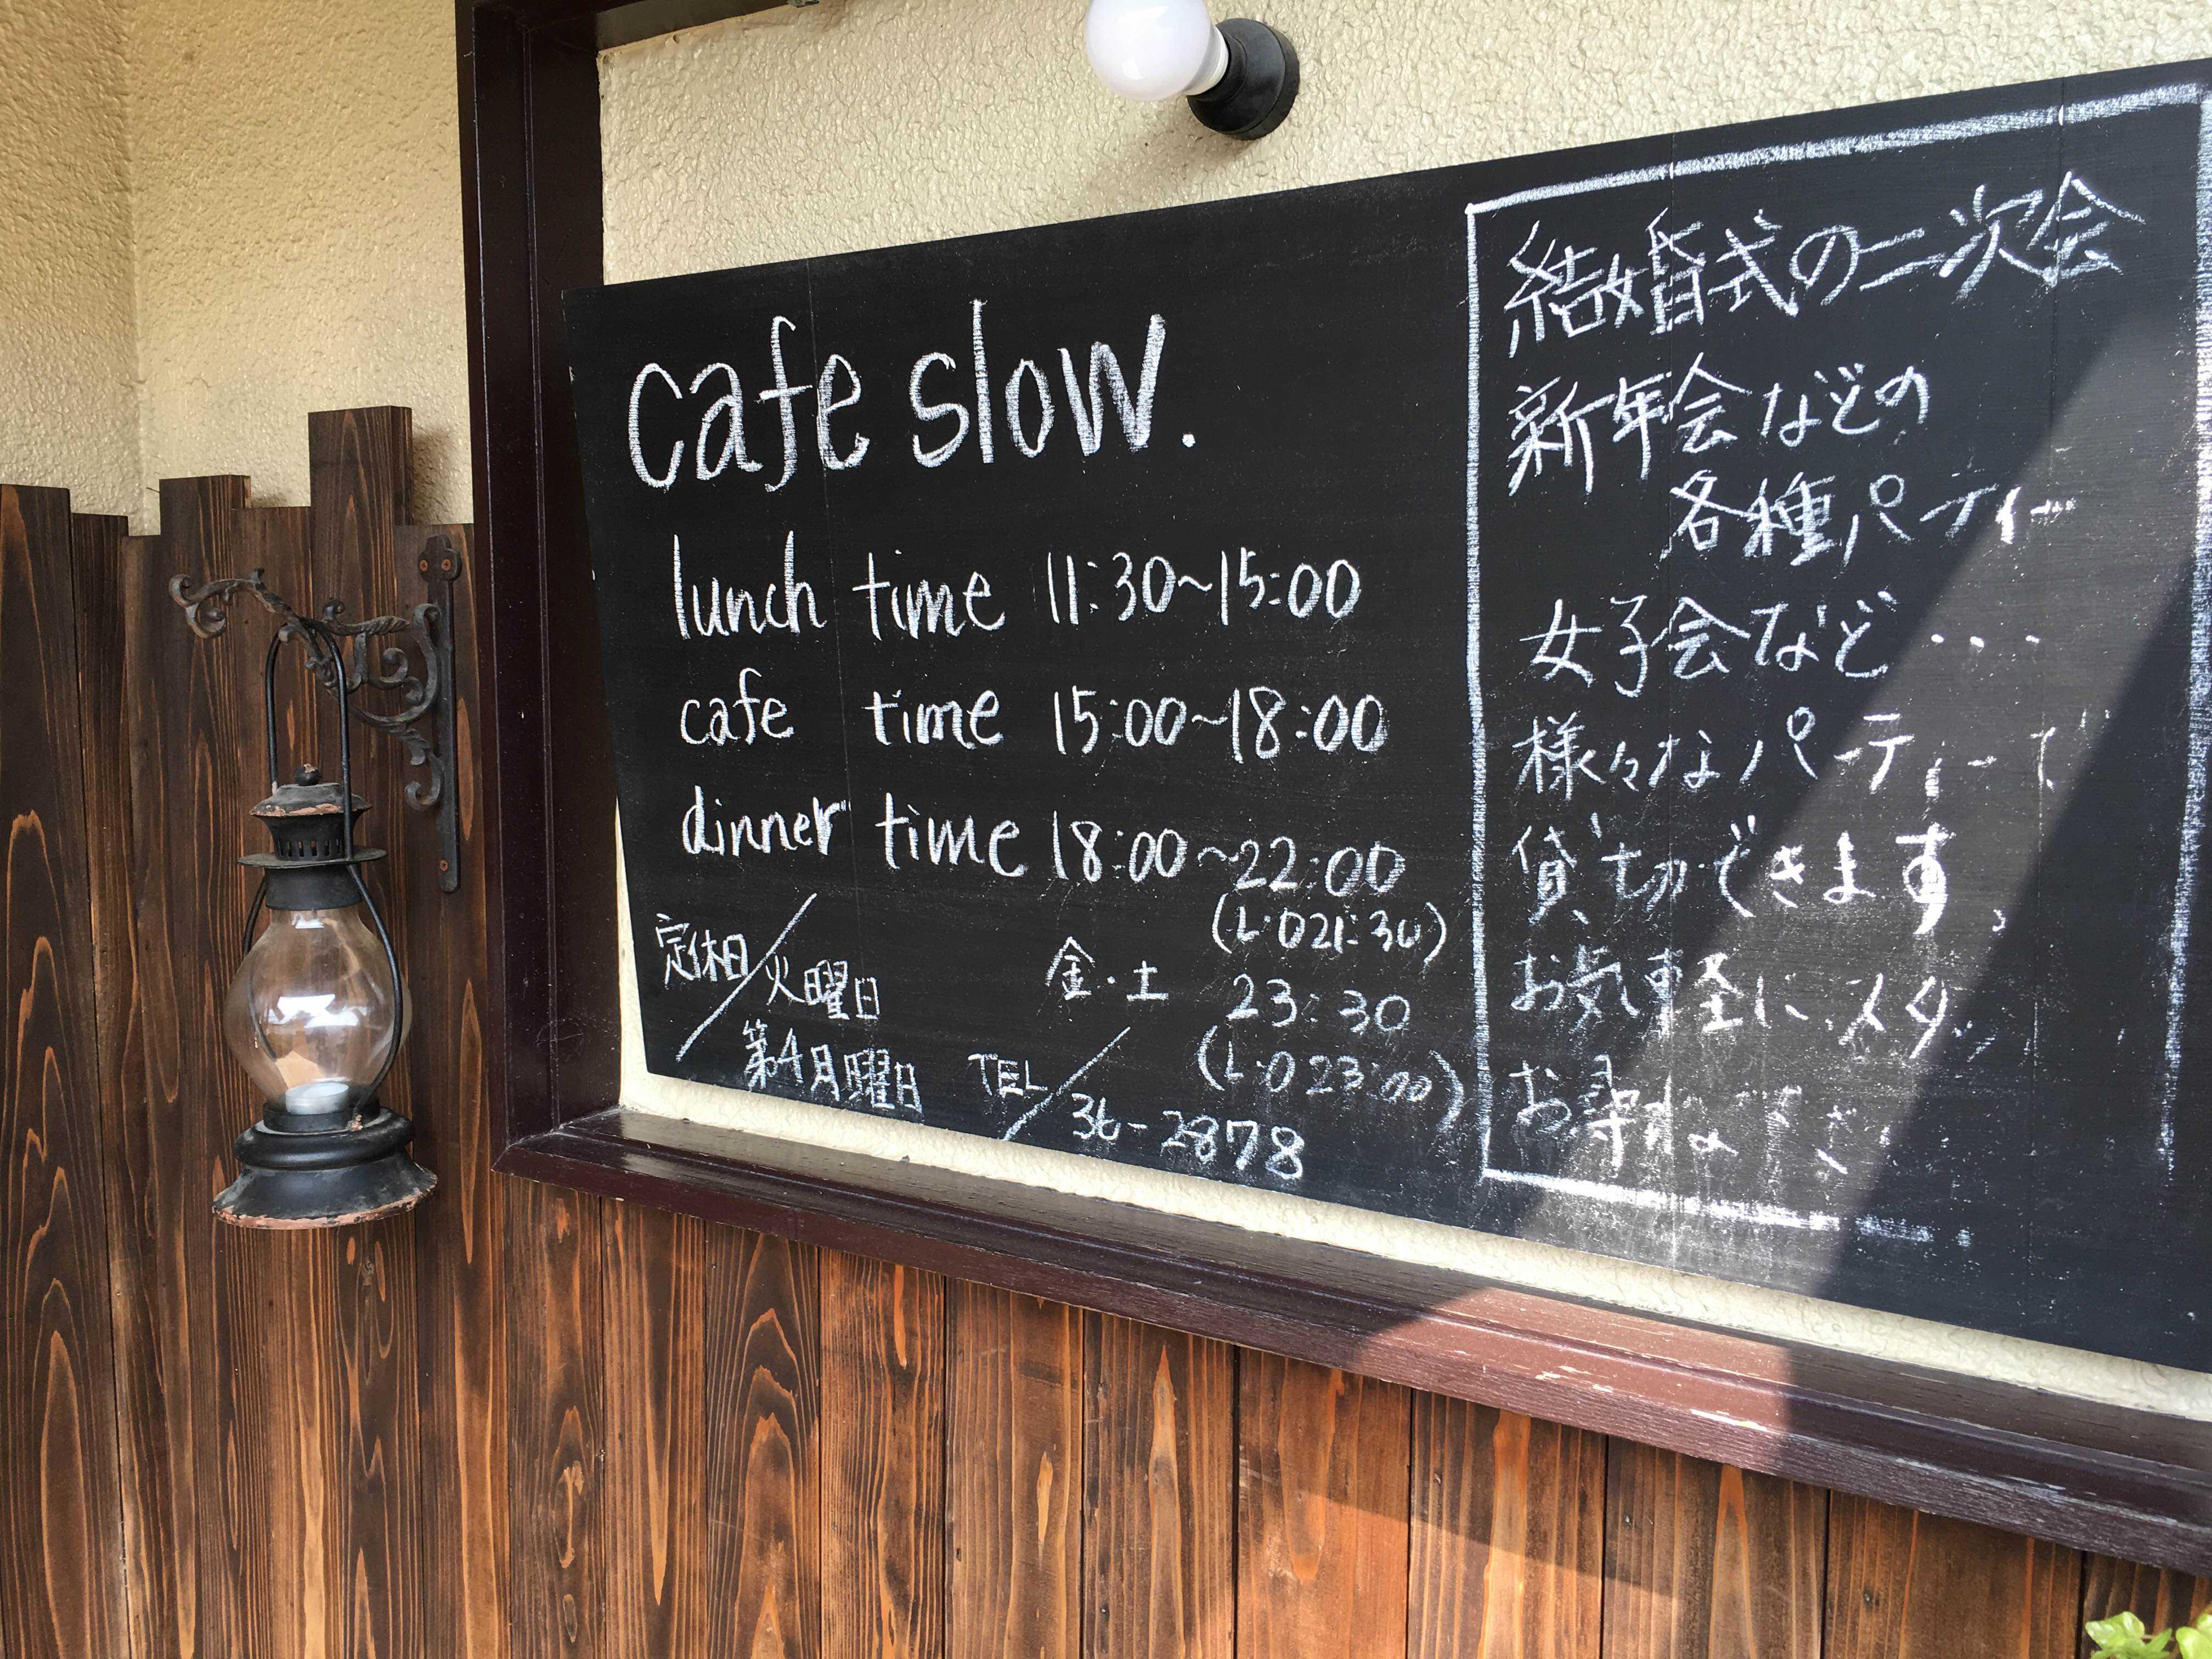 cafe slow.
lunch time 11:30~15:00
cafe time 15:00~18:00
dinner time 18:00~22:00
(L・O21:30)
金・土 23:30
(L・O23:00)
定休日/火曜日
第4月曜日
TEL/36-2878
結婚式の二次会
新年会などの
各種パティー
女子会など・・・
様々なパティーで
貸し切りできます。
お気軽にスタッ
お尋ね